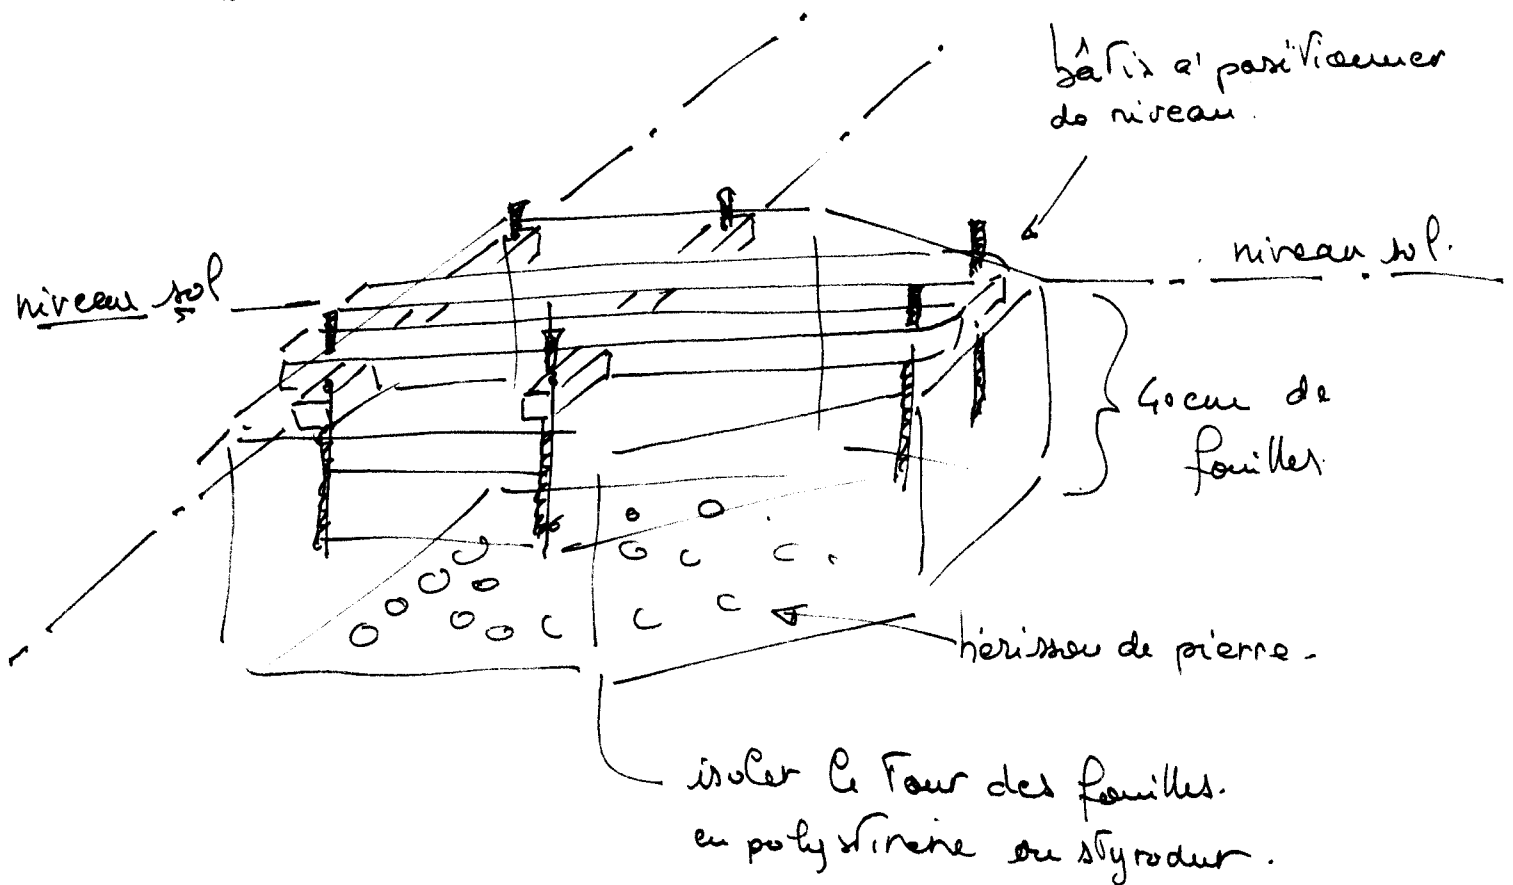 bâtis à positionner
de niveau.
niveau sol.
niveau sol
40cm de
fouilles
hérisson de pierre.
isoler le Tour des fouilles.
en polystirène ou styrodur.